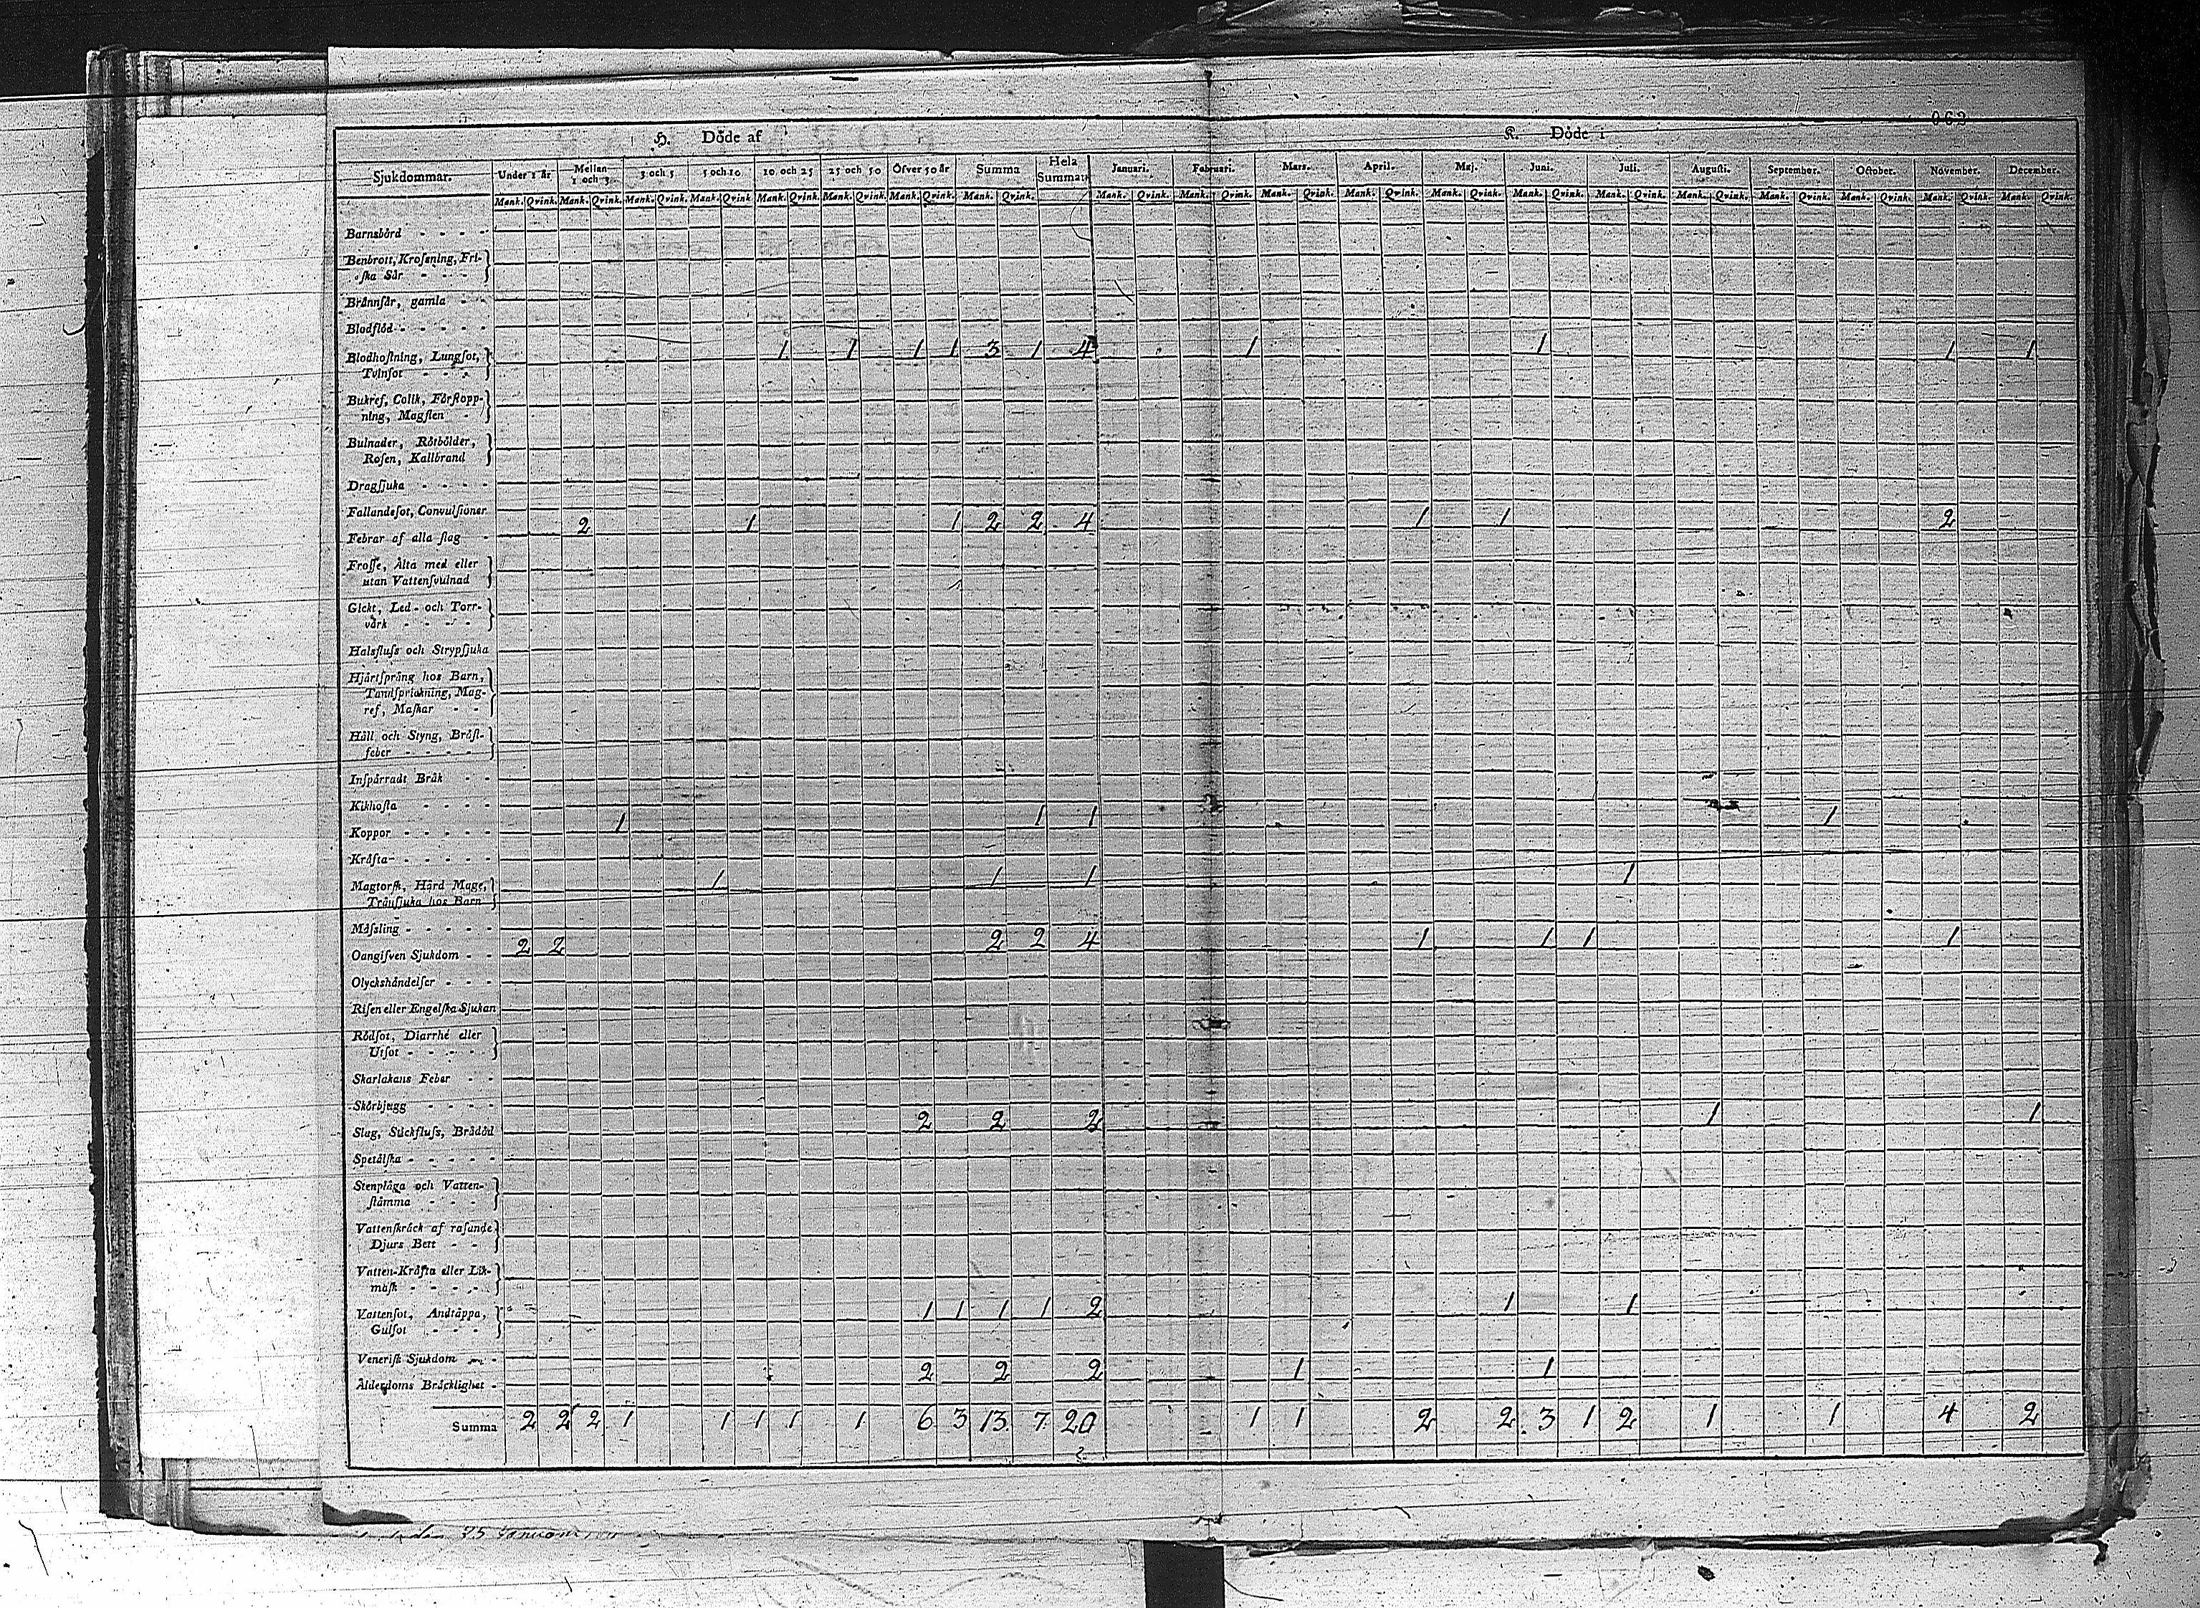 062
H. Döde af K. Döde i
Sjukdommar. Under 1 år Mellan 1 och 3. 3 och 5 5 och 10 10 och 25 25 och 50 Öfver 50 år Summa Hela Summan Januari. Februari. Mars. April. Maj. Juni. Juli. Augusti. September. October. November. December.
Mank. Qvink. Mank. Qvink. Mank. Qvink. Mank. Qvink. Mank. Qvink. Mank. Qvink. Mank. Qvink. Mank. Qvink. Mank. Qvink. Mank. Qvink. Mank. Qvink. Mank. Qvink. Mank. Qvink. Mank. Qvink. Mank. Qvink. Mank. Qvink. Mank. Qvink. Mank. Qvink. Mank. Qvink. Mank. Qvink.
Barnsbörd - - - -
Benbrott, Krosſning, Fri-
ſka Sår - - -
Brännſår, gamla - -
Blodflöd - - - - -
Blodhoſtning, Lungſot, 1 1 1 1 3 1 4 1 1 1 1
Tvinſot - - -
Bukref, Colik, Förſtopp-
ning, Magſten -
Bulnader, Rötbölder,
Roſen, Kallbrand
Dragſjuka - - - -
Fallandeſot, Convulſioner
Febrar af alla ſlag - 2 1 1 2 2 4 1 1 2
Froſſe, Älta med eller
utan Vattenſvulnad
Gickt, Led- och Torr-
värk - - - -
Halsfluſs och Strypſjuka
Hjärtſprång hos Barn,
Tandſprickning, Mag-
ref, Maſkar - -
Håll och Styng, Bröſt-
feber - - - -
Inſpärradt Bråk - -
Kikhoſta - - - -
Koppor - - - - - 1 1 1 1
Kräfta - - - - -
Magtorſk, Hård Mage, 1 1 1 1
Tränſjuka hos Barn
Mäſsling - - - - -
Oangifven Sjukdom - - 2 2 2 2 4 1 1 1 1
Olyckshändelſer - - -
Riſen eller Engelſka Sjukan
Rödſot, Diarrhé eller
Utſot - - - - -
Skarlakans Feber - -
Skörbjugg - - - -
Slag, Stickfluſs, Brådöd 2 2 2 1 1
Spetälſka - - - - -
Stenplåga och Vatten-
ſtämma - - - -
Vattenſkräck af raſande
Djurs Bett - -
Vatten-Kräfta eller Lik-
maſk - - - - -
Vattenſot, Andtäppa, 1 1 1 1 2 1 1
Gulſot - - -
Veneriſk Sjukdom - -
Ålderdoms Bräcklighet - 2 2 2 1 1
Summa 2 2 2 1 1 1 1 1 6 3 13 7 20 1 1 2 2 3 1 2 1 1 4 2
25 Januari